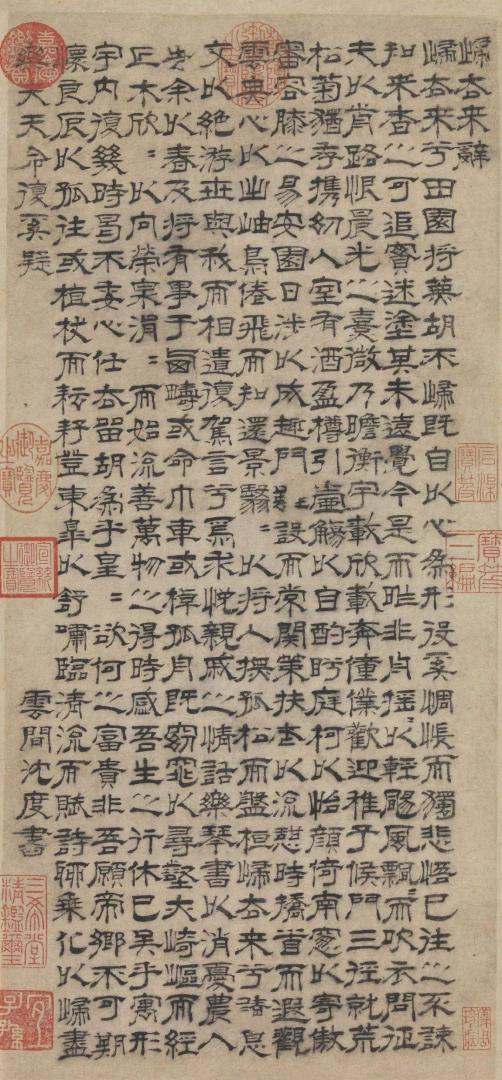 歸去來辭
歸去來兮田園將蕪胡不歸既自以心為形役奚惆悵而獨悲悟已往之不諫
知來者之可追實迷塗其未遠覺今是而昨非舟搖〻以輕颺風飄〻而吹衣問征
夫以前路恨晨光之熹微乃瞻衡宇載欣載奔僮僕歡迎稚子候門三徑就荒
松菊猶存攜幼入室有酒盈樽引壺觴以自酌眄庭柯以怡顏倚南窗以寄傲
審容膝之易安園日涉以成趣門雖設而常關策扶老以流憩時矯首而遐觀
雲無心以出岫鳥倦飛而知還景翳〻以將入撫孤松而盤桓歸去來兮請息
交以絕游世與我而相遺復駕言兮焉求悅親戚之情話樂琴書以消憂農人
告余以春及將有事于西疇或命巾車或棹孤舟既窈窕以尋壑亦崎嶇而經
丘木欣〻以向榮泉涓〻而始流善萬物之得時感吾生之行休已矣乎寓形
宇內復幾時曷不委心任去留胡為乎皇〻欲何之富貴非吾願帝鄉不可期
懷良辰以孤往或植杖而耘耔登東皋以舒嘯臨清流而賦詩聊乘化以歸盡
樂夫天命復奚疑
雲間沈度書
石渠寶笈
寶笈三編
嘉慶鑑賞
嘉慶御覽之寶
宣統御覽之寶
三希堂精鑑璽
宜子孫